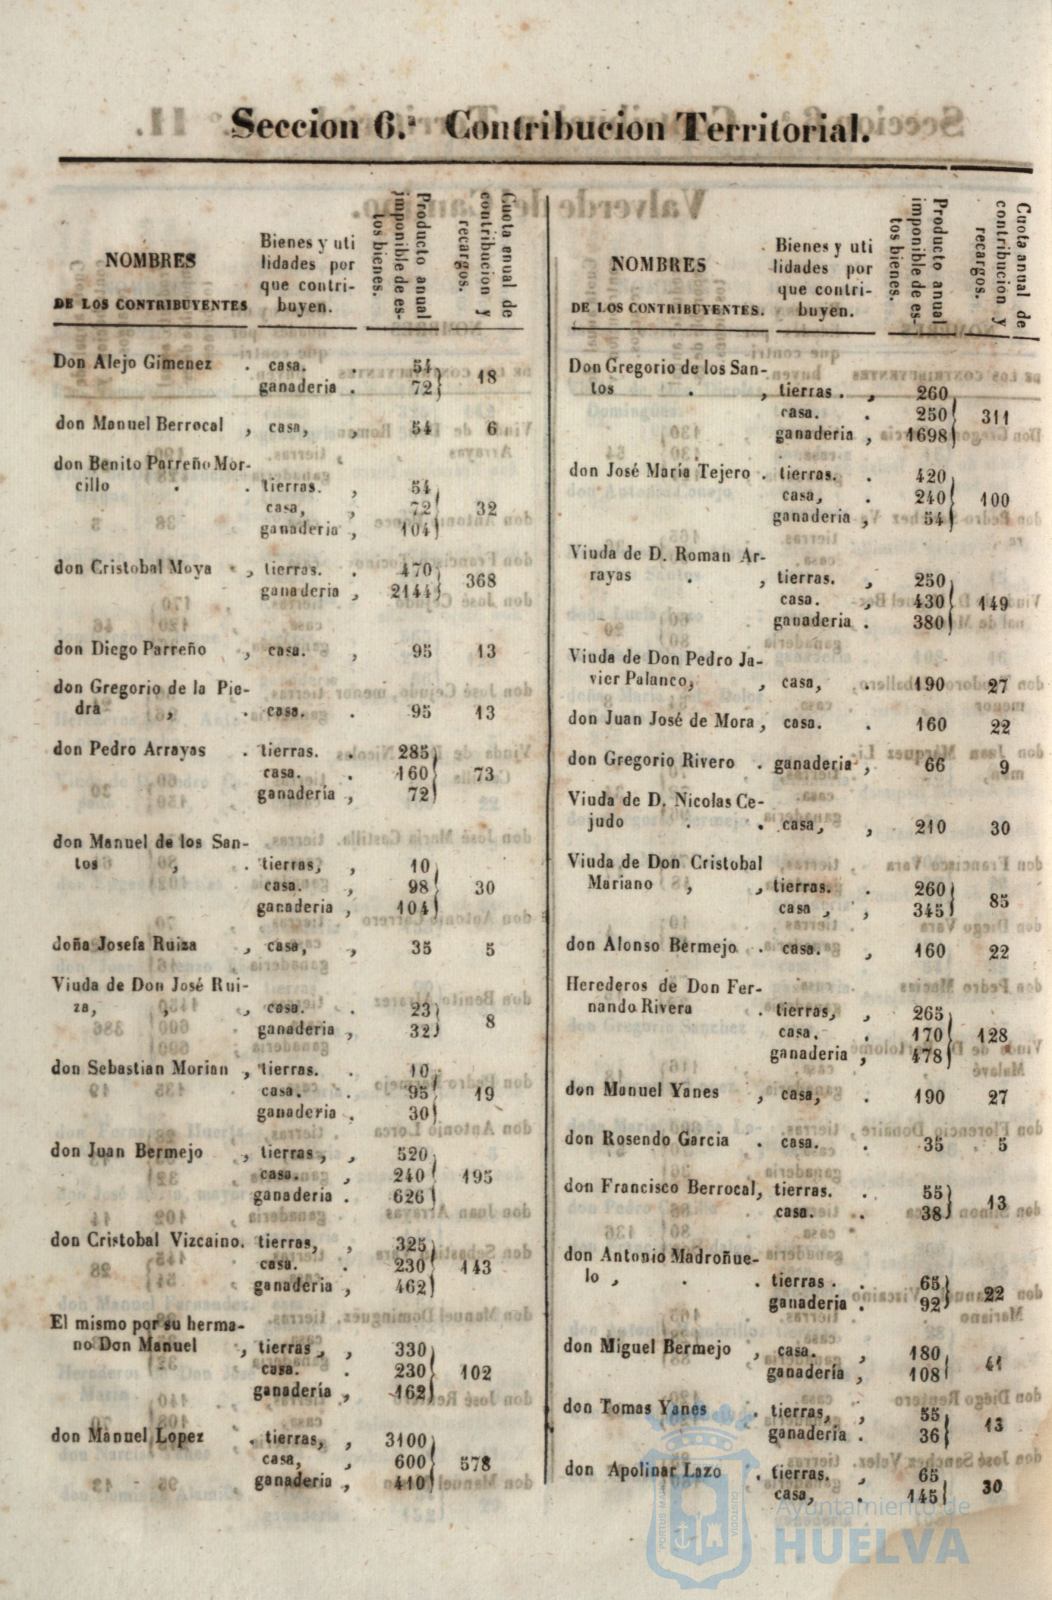 Seccion 6.ª Contribucion Territorial.
NOMBRES
DE LOS CONTRIBUYENTES
Bienes y uti
lidades por
que contri-
buyen.
Producto anual
imponible de es-
tos bienes.
Cuota anual de
contribucion y
recargos.
Don Alejo Gimenez . casa. . 54
ganaderia . 72 18
don Manuel Berrocal , casa, , 54 6
don Benito Parreño Mor-
cillo . . tierras. , 54
casa, , 72 32
ganaderia , 104
don Cristobal Moya , tierras. . 470
ganaderia , 2144 368
don Diego Parreño , casa. , 95 13
don Gregorio de la Pie-
dra , . casa. . 95 13
don Pedro Arrayas . tierras. . 285
casa. . 160 73
ganadería , 72
don Manuel de los San-
tos , . tierras, , 10
casa. , 98 30
ganaderia , 104
doña Josefa Ruiza , casa, , 35 5
Viuda de Don José Rui-
za, , , casa. . 23
ganaderia , 32 8
don Sebastian Morian , tierras. . 10
casa. . 95 19
ganaderia . 30
don Juan Bermejo , tierras , , 520
casa. , 240 195
ganaderia . 626
don Cristobal Vizcaino. tierras, , 325
casa. . 230 143
ganaderia , 462
El mismo por su herma-
no Don Manuel , tierras , , 330
casa. . 230 102
ganadería , 162
don Manuel Lopez . tierras, , 3100
casa, , 600 578
ganaderia , 410
NOMBRES
DE LOS CONTRIBUYENTES.
Bienes y uti
lidades por
que contri-
buyen.
Producto anual
imponible de es-
tos bienes.
Cuota anual de
contribucion y
recargos.
Don Gregorio de los San-
tos . , tierras . , 260
casa. . 250 311
ganaderia , 1698
don José María Tejero . tierras. . 420
casa, . 240 100
ganaderia , 54
Viuda de D. Roman Ar-
rayas . , tierras. , 250
casa. , 430 149
ganaderia . 380
Viuda de Don Pedro Ja-
vier Palanco, , casa, . 190 27
don Juan José de Mora , casa. . 160 22
don Gregorio Rivero . ganaderia , 66 9
Viuda de D. Nicolas Ce-
judo . . casa, , 210 30
Viuda de Don Cristobal
Mariano , , tierras. . 260
casa , , 345 85
don Alonso Bermejo . casa. , 160 22
Herederos de Don Fer-
nando Rivera . tierras, , 265
casa. . 170 128
ganaderia , 478
don Manuel Yanes , casa, . 190 27
don Rosendo Garcia . casa. . 35 5
don Francisco Berrocal, tierras. . 55
casa. . 38 13
don Antonio Madroñue-
lo , . . tierras . . 65
ganaderia . 92 22
don Miguel Bermejo , casa. , 180
ganadería , 108 41
don Tomas Yanes . tierras, , 55
ganaderia . 36 13
don Apolinar Lazo . tierras. , 65
casa, . 145 30
Ayuntamiento de
HUELVA